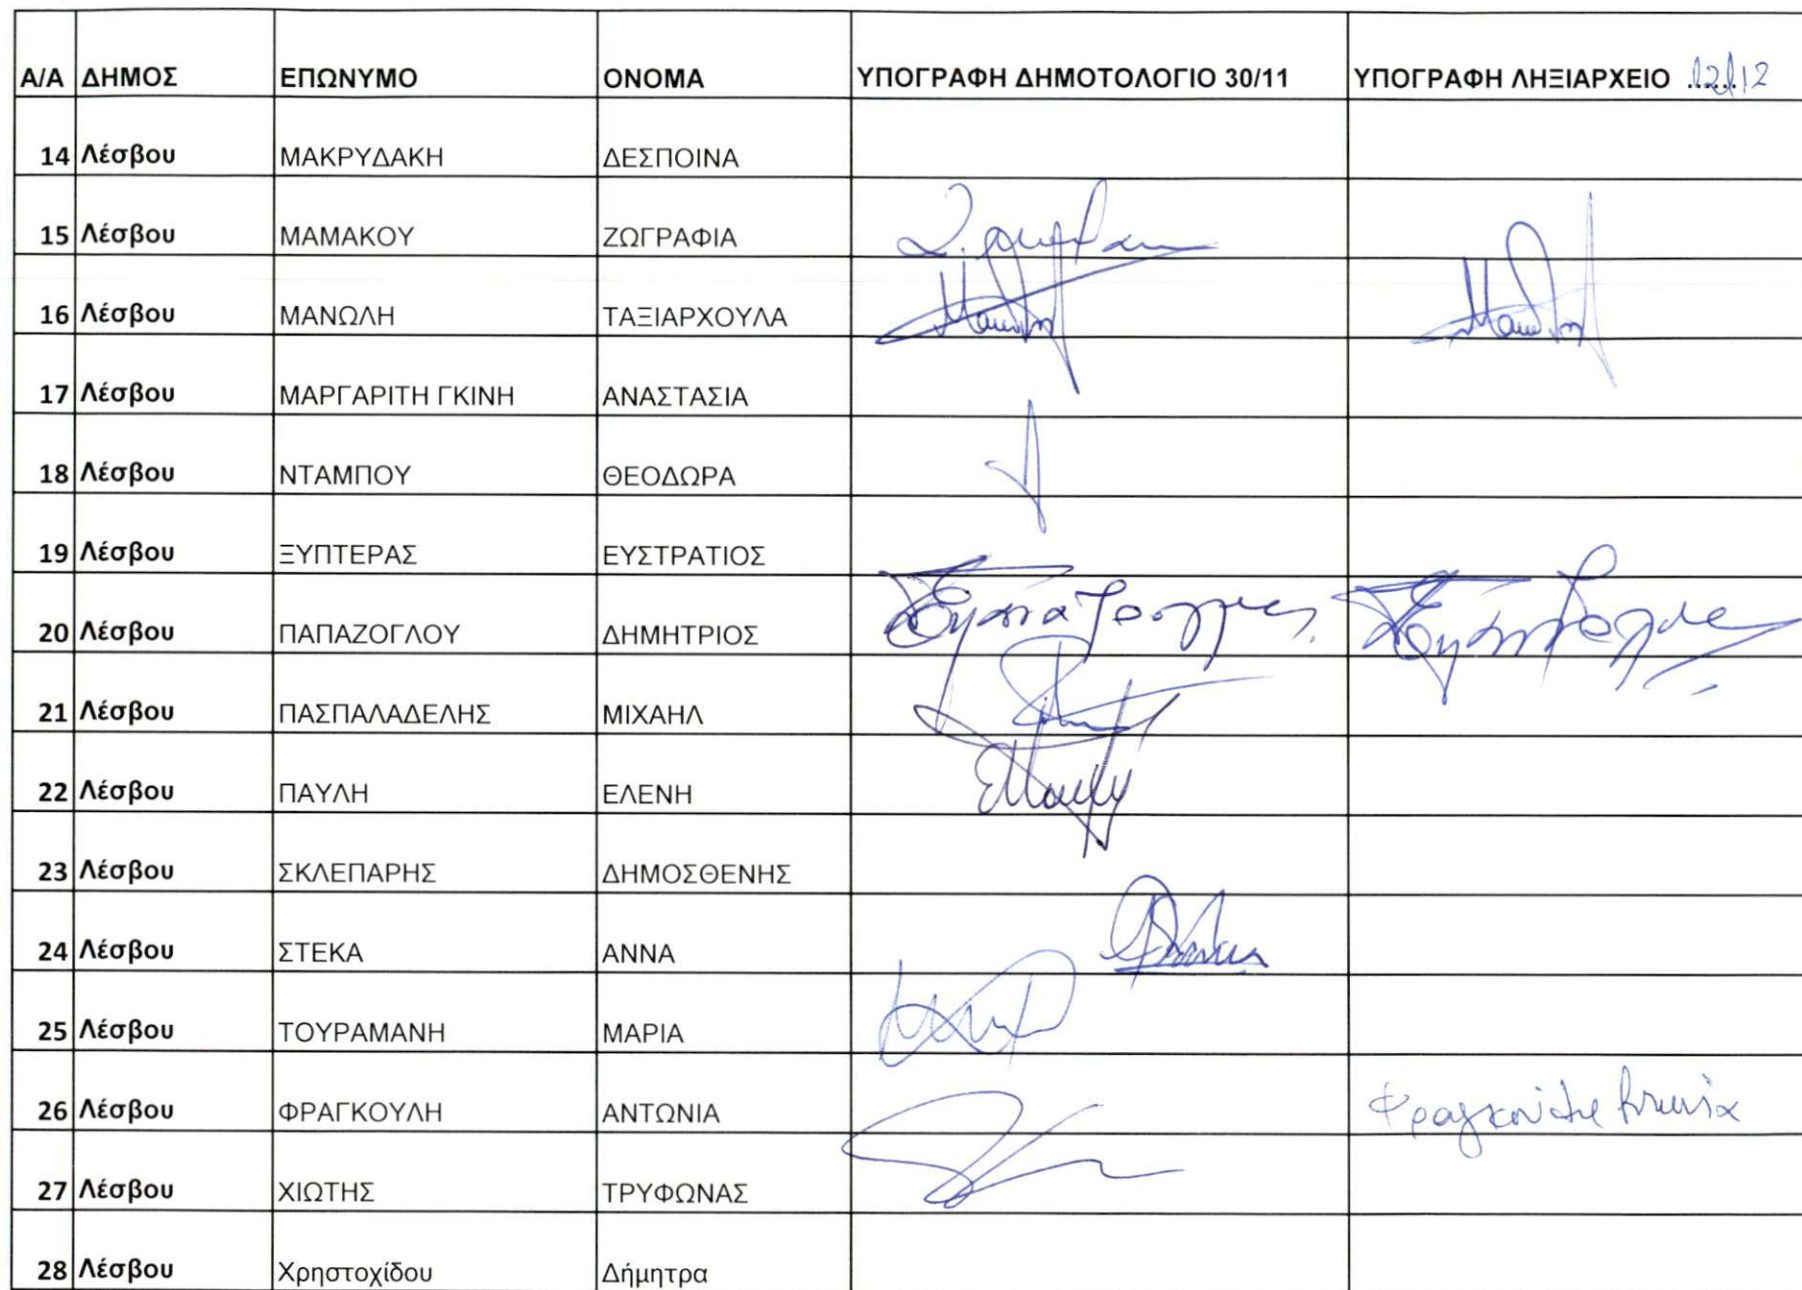 Α/Α ΔΗΜΟΣ ΕΠΩΝΥΜΟ ΟΝΟΜΑ ΥΠΟΓΡΑΦΗ ΔΗΜΟΤΟΛΟΓΙΟ 30/11 ΥΠΟΓΡΑΦΗ ΛΗΞΙΑΡΧΕΙΟ 12/12
14 Λέσβου ΜΑΚΡΥΔΑΚΗ ΔΕΣΠΟΙΝΑ
15 Λέσβου ΜΑΜΑΚΟΥ ΖΩΓΡΑΦΙΑ
16 Λέσβου ΜΑΝΩΛΗ ΤΑΞΙΑΡΧΟΥΛΑ
17 Λέσβου ΜΑΡΓΑΡΙΤΗ ΓΚΙΝΗ ΑΝΑΣΤΑΣΙΑ
18 Λέσβου ΝΤΑΜΠΟΥ ΘΕΟΔΩΡΑ
19 Λέσβου ΞΥΠΤΕΡΑΣ ΕΥΣΤΡΑΤΙΟΣ
20 Λέσβου ΠΑΠΑΖΟΓΛΟΥ ΔΗΜΗΤΡΙΟΣ
21 Λέσβου ΠΑΣΠΑΛΑΔΕΛΗΣ ΜΙΧΑΗΛ
22 Λέσβου ΠΑΥΛΗ ΕΛΕΝΗ
23 Λέσβου ΣΚΛΕΠΑΡΗΣ ΔΗΜΟΣΘΕΝΗΣ
24 Λέσβου ΣΤΕΚΑ ΑΝΝΑ
25 Λέσβου ΤΟΥΡΑΜΑΝΗ ΜΑΡΙΑ
26 Λέσβου ΦΡΑΓΚΟΥΛΗ ΑΝΤΩΝΙΑ
27 Λέσβου ΧΙΩΤΗΣ ΤΡΥΦΩΝΑΣ
28 Λέσβου Χρηστοχίδου Δήμητρα